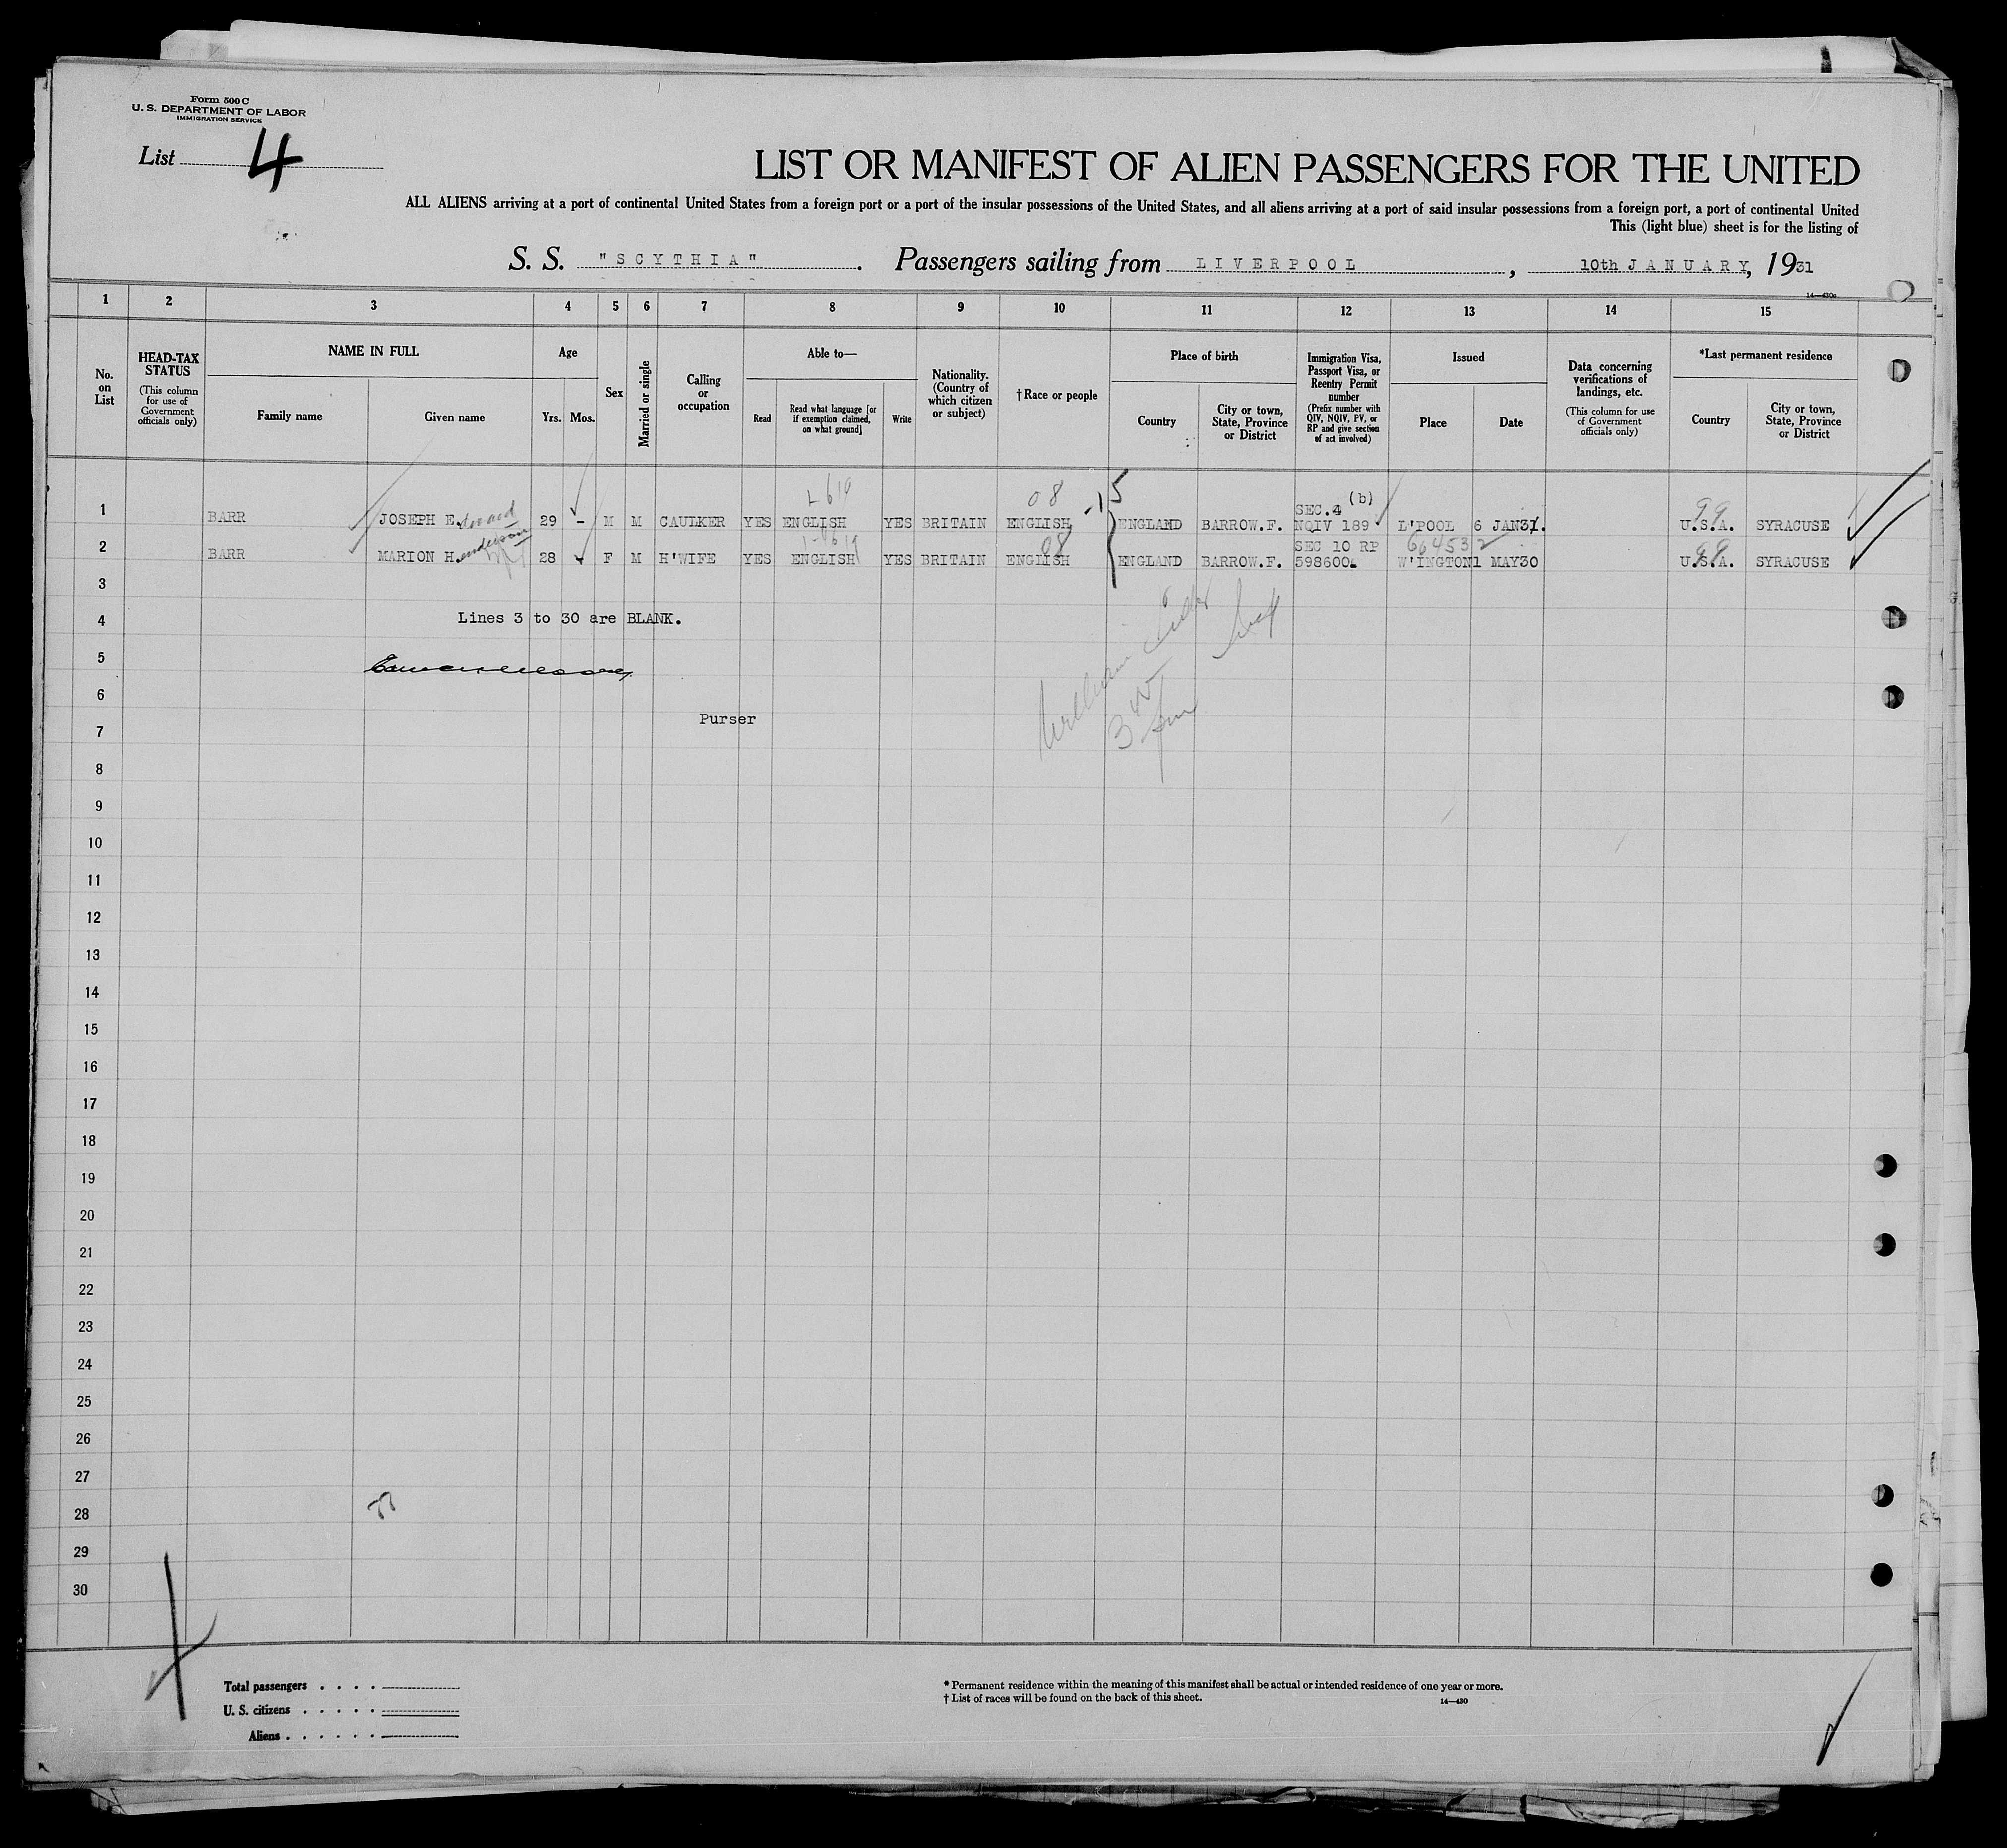 Form 500 C
U. S. DEPARTMENT OF LABOR
IMMIGRATION SERVICE
List 4
LIST OR MANIFEST OF ALIEN PASSENGERS FOR THE UNITED
ALL ALIENS arriving at a port of continental United States from a foreign port or a port of the insular possessions of the United States, and all aliens arriving at a port of said insular possessions from a foreign port, a port of continental United
This (light blue) sheet is for the listing of
S. S. "SCYTHIA". Passengers sailing from LIVERPOOL, 10th JANUARY, 1931
14—430c
1 2 3 4 5 6 7 8 9 10 11 12 13 14 15
No. on List
HEAD-TAX STATUS (This column for use of Government officials only)
NAME IN FULL
Family name
Given name
Age
Yrs. Mos.
Sex
Married or single
Calling or occupation
Able to—
Read
Read what language [or if exemption claimed, on what ground]
Write
Nationality. (Country of which citizen or subject)
† Race or people
Place of birth
Country
City or town, State, Province or District
Immigration Visa, Passport Visa, or Reentry Permit number (Prefix number with QIV, NQIV, PV, or RP and give section of act involved)
Issued
Place
Date
Data concerning verifications of landings, etc. (This column for use of Government officials only)
*Last permanent residence
Country
City or town, State, Province or District
08 -15 SEC.4 (b) 99
1 BARR JOSEPH Edward 29 - M M CAULKER YES ENGLISH YES BRITAIN ENGLISH ENGLAND BARROW.F. NQIV 189 L'POOL 6 JAN31. U.S.A. SYRACUSE
08 SEC 10 RP 664532 99
2 BARR MARION Henderson 28 - F M H'WIFE YES ENGLISH YES BRITAIN ENGLISH ENGLAND BARROW.F. 598600. W'INGTON 1 MAY30 U.S.A. SYRACUSE
3
4 Lines 3 to 30 are BLANK.
5
6
Purser
7
8
9
10
11
12
13
14
15
16
17
18
19
20
21
22
23
24
25
26
27
28
29
30
Total passengers . . . .
U. S. citizens . . . . . .
Aliens . . . . . .
* Permanent residence within the meaning of this manifest shall be actual or intended residence of one year or more.
† List of races will be found on the back of this sheet.
14—430